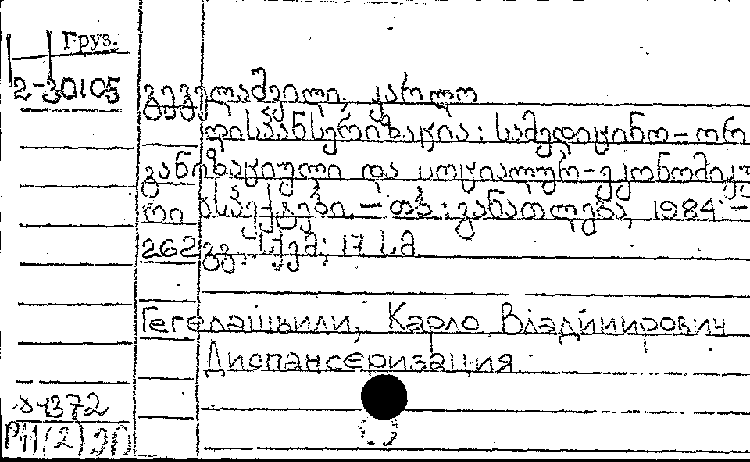 Груз.
2-30105
გეგელაშვილი, კარლო
დისპანსერიზაცია: სამედიცინო-ორ
განიზაციული და სოციალურ-ეკონომიკუ
რი ასპექტები. - თბ.: განათლება, 1984 -
262 გვ.: სქემ; 17 სმ
Гегелашвили, Карло Владимирович
Диспансеризация
372
Р11(2)